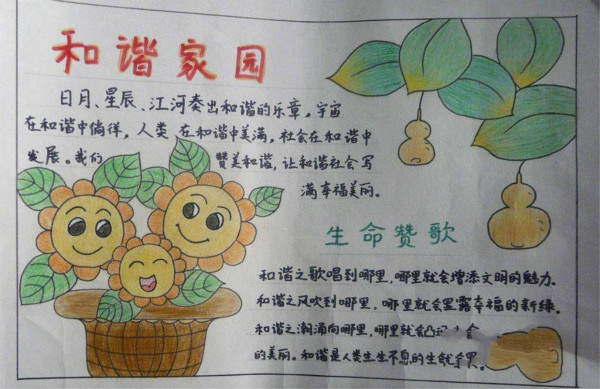 和谐家园
日月、星辰、江河奏出和谐的乐章，宇宙
在和谐中倘徉，人类 在和谐中美满，社会在和谐中
发展。我们 赞美和谐，让和谐社会写
满幸福美丽。
生命赞歌
和谐之歌唱到哪里，哪里就会增添文明的魅力。
和谐之风吹到哪里，哪里就会显露幸福的新绿。
和谐之潮涌向哪里，哪里就会凸现
的美丽。和谐是人类生生不息的生命